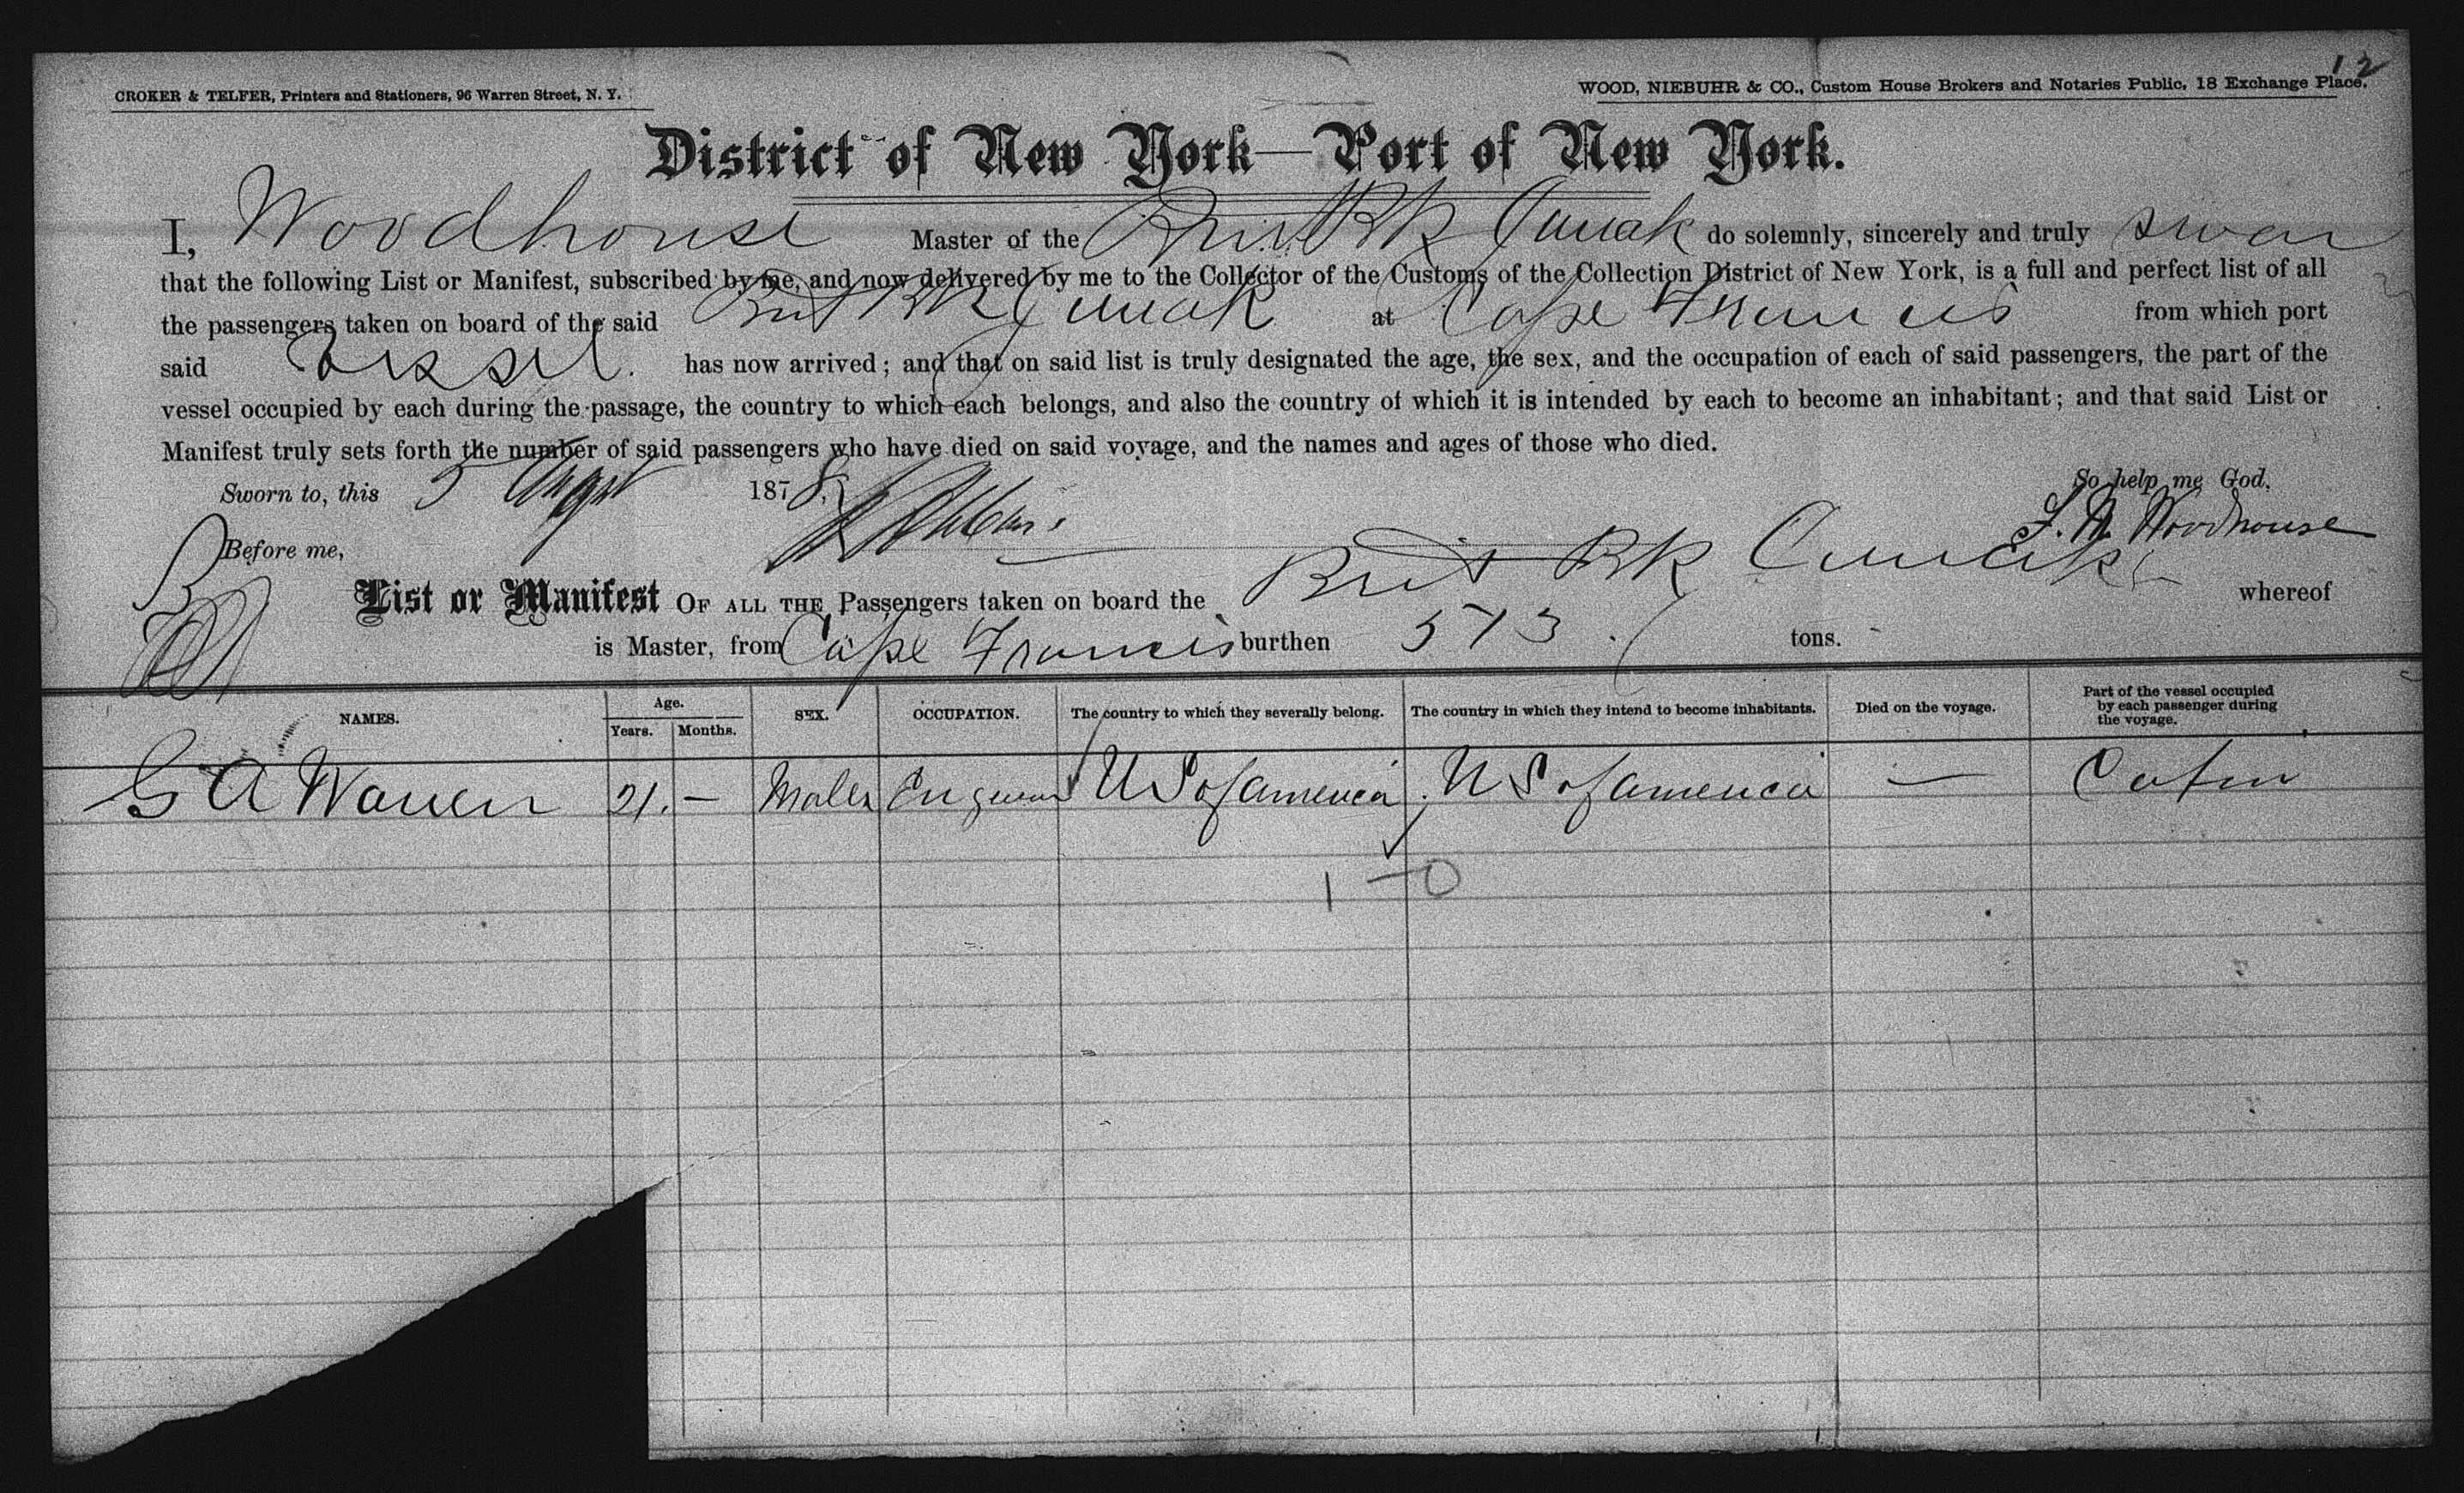 12
CROKER & TELFER, Printers and Stationers, 96 Warren Street, N. Y.
WOOD, NIEBUHR & CO., Custom House Brokers and Notaries Public, 18 Exchange Place.
District of New York—Port of New York.
I, Woodhouse Master of the Brit Bk do solemnly, sincerely and truly swear
that the following List or Manifest, subscribed by me, and now delivered by me to the Collector of the Customs of the Collection District of New York, is a full and perfect list of all
the passengers taken on board of the said Brit Bk at Cape Francis from which port
said Vessel. has now arrived; and that on said list is truly designated the age, the sex, and the occupation of each of said passengers, the part of the
vessel occupied by each during the passage, the country to which each belongs, and also the country of which it is intended by each to become an inhabitant; and that said List or
Manifest truly sets forth the number of said passengers who have died on said voyage, and the names and ages of those who died.
Sworn to, this 5 Augst 1878. So help me God.
Before me, Woodhouse
List or Manifest OF ALL THE Passengers taken on board the Brit Bk whereof
is Master, from Cape Francis burthen 573. tons.
NAMES. Age. Years. Months. SEX. OCCUPATION. The country to which they severally belong. The country in which they intend to become inhabitants. Died on the voyage. Part of the vessel occupied by each passenger during the voyage.
G A Warren 21. — Male Engineer U S of America U S of America — Cabin
1 — 0